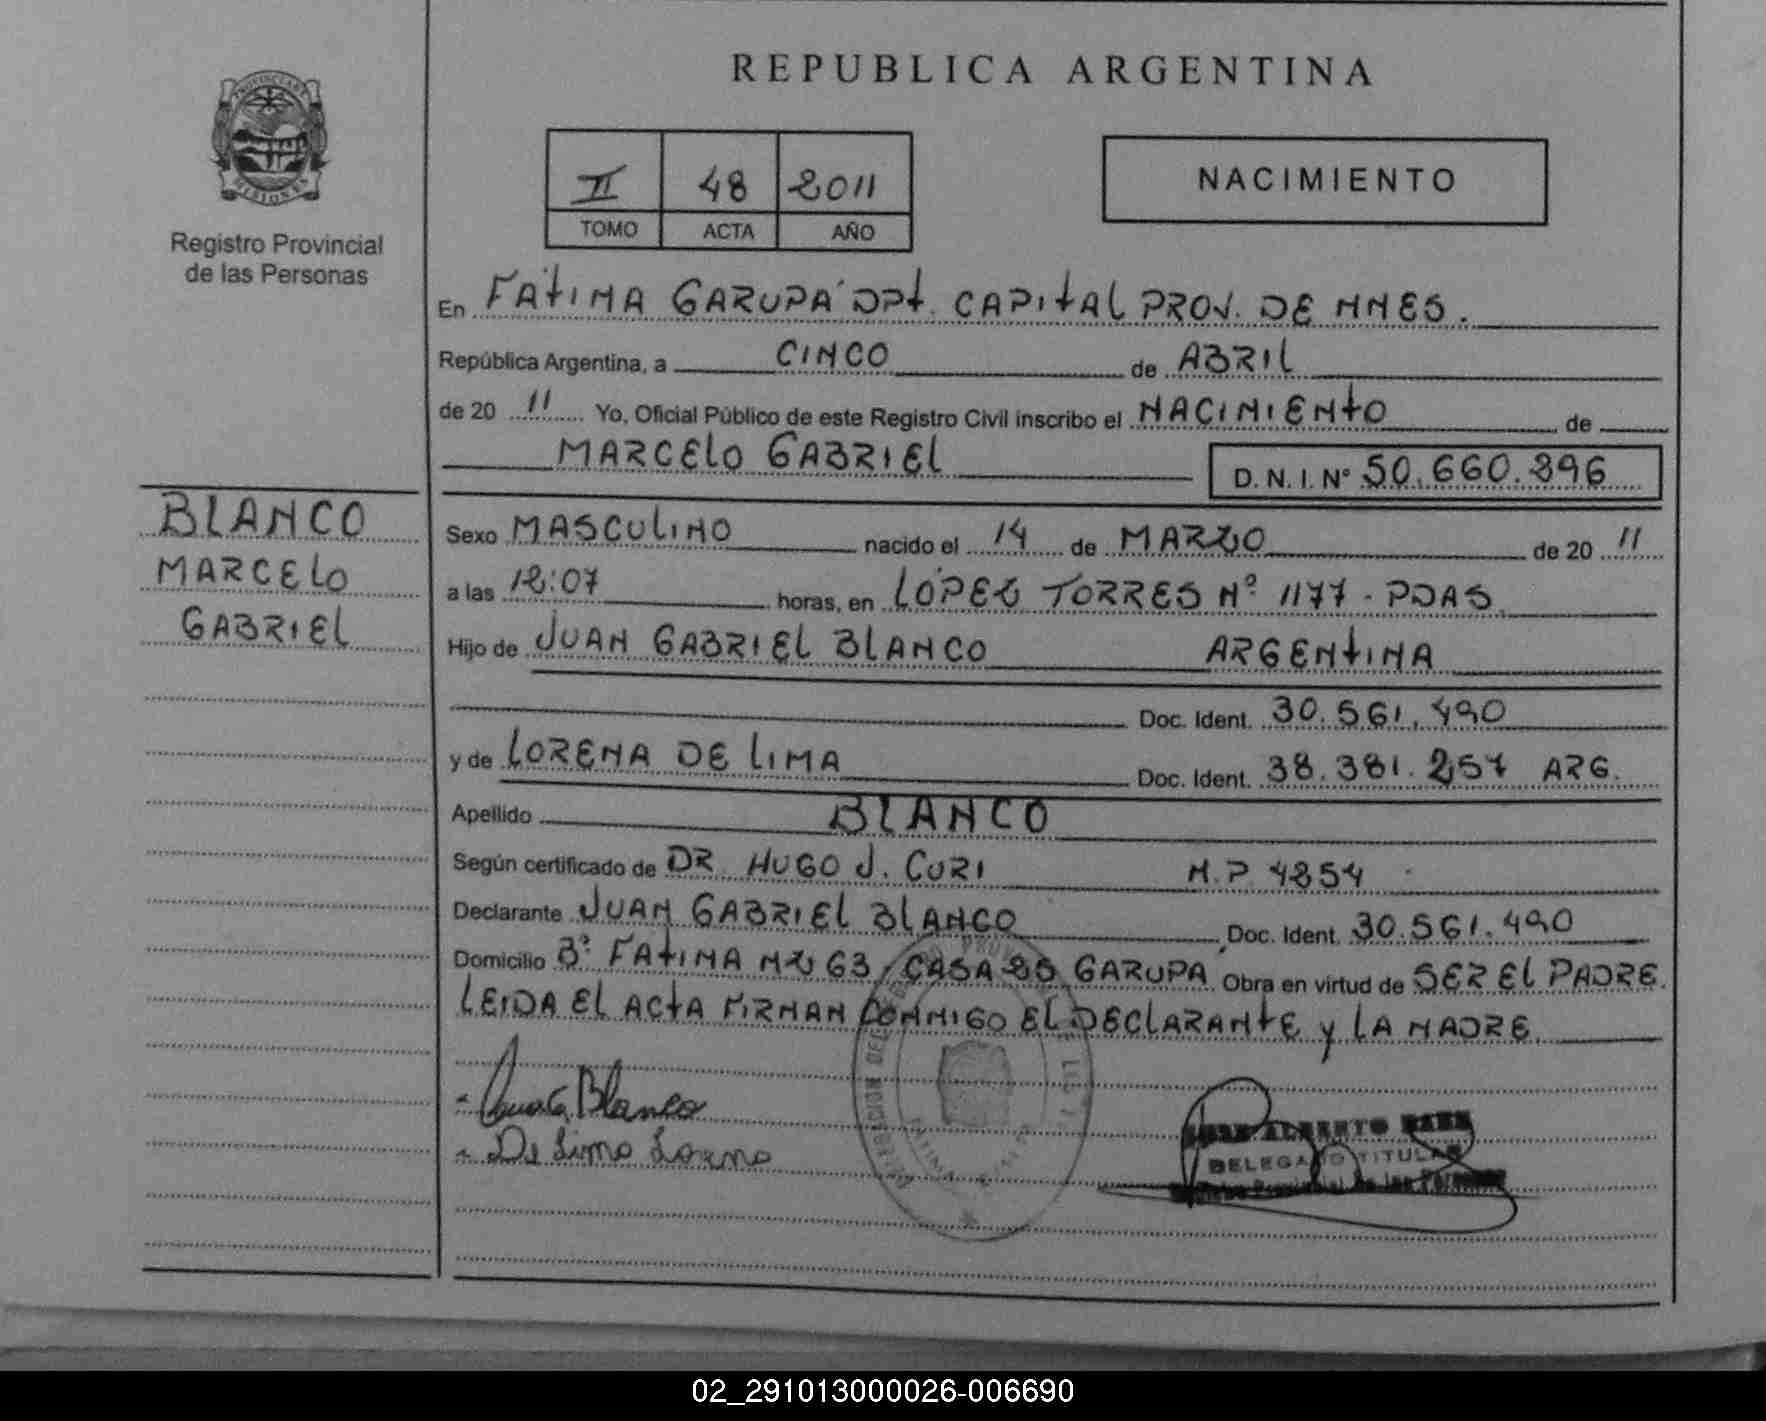 REPUBLICA ARGENTINA
II 48 2011
TOMO ACTA AÑO
NACIMIENTO
PROVINCIA DE
MISIONES
Registro Provincial
de las Personas
En FATIMA GARUPA DPT. CAPITAL PROV. DE MNES.
República Argentina, a CINCO de ABRIL
de 20 11 Yo, Oficial Público de este Registro Civil inscribo el NACIMIENTO de
MARCELO GABRIEL D.N.I. Nº 50.660.896
BLANCO
MARCELO
GABRIEL
Sexo MASCULINO nacido el 14 de MARZO de 20 11
a las 12:07 horas, en LÓPEZ TORRES Nº 1177 - PDAS
Hijo de JUAN GABRIEL BLANCO ARGENTINA
Doc. Ident. 30.561.490
y de LORENA DE LIMA Doc. Ident. 38.381.257 ARG.
Apellido BLANCO
Según certificado de DR. HUGO J. CURI M.P. 4854
Declarante JUAN GABRIEL BLANCO Doc. Ident. 30.561.490
Domicilio Bº FATIMA MZ 63, CASA 25 GARUPA Obra en virtud de SER EL PADRE.
LEIDA EL ACTA FIRMAN CONMIGO EL DECLARANTE y LA MADRE.
Blanco
De Lima Lorena
ALBERTO
DELEGADO TITULAR
Registro Provincial de las Personas
02_291013000026-006690